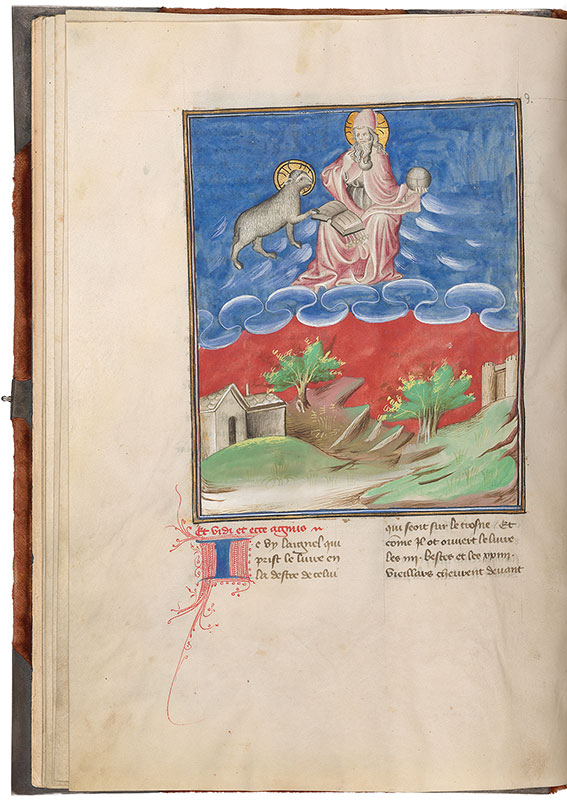 9.
Et vidi et ecce agnus
Ie vy laignel qui
prist le livre en
la destre de celui
qui seoit sur le trosne / Et
come il ot ouvert le livre
les iiii. bestes et les xxiiii.
vieillars cheurent devant